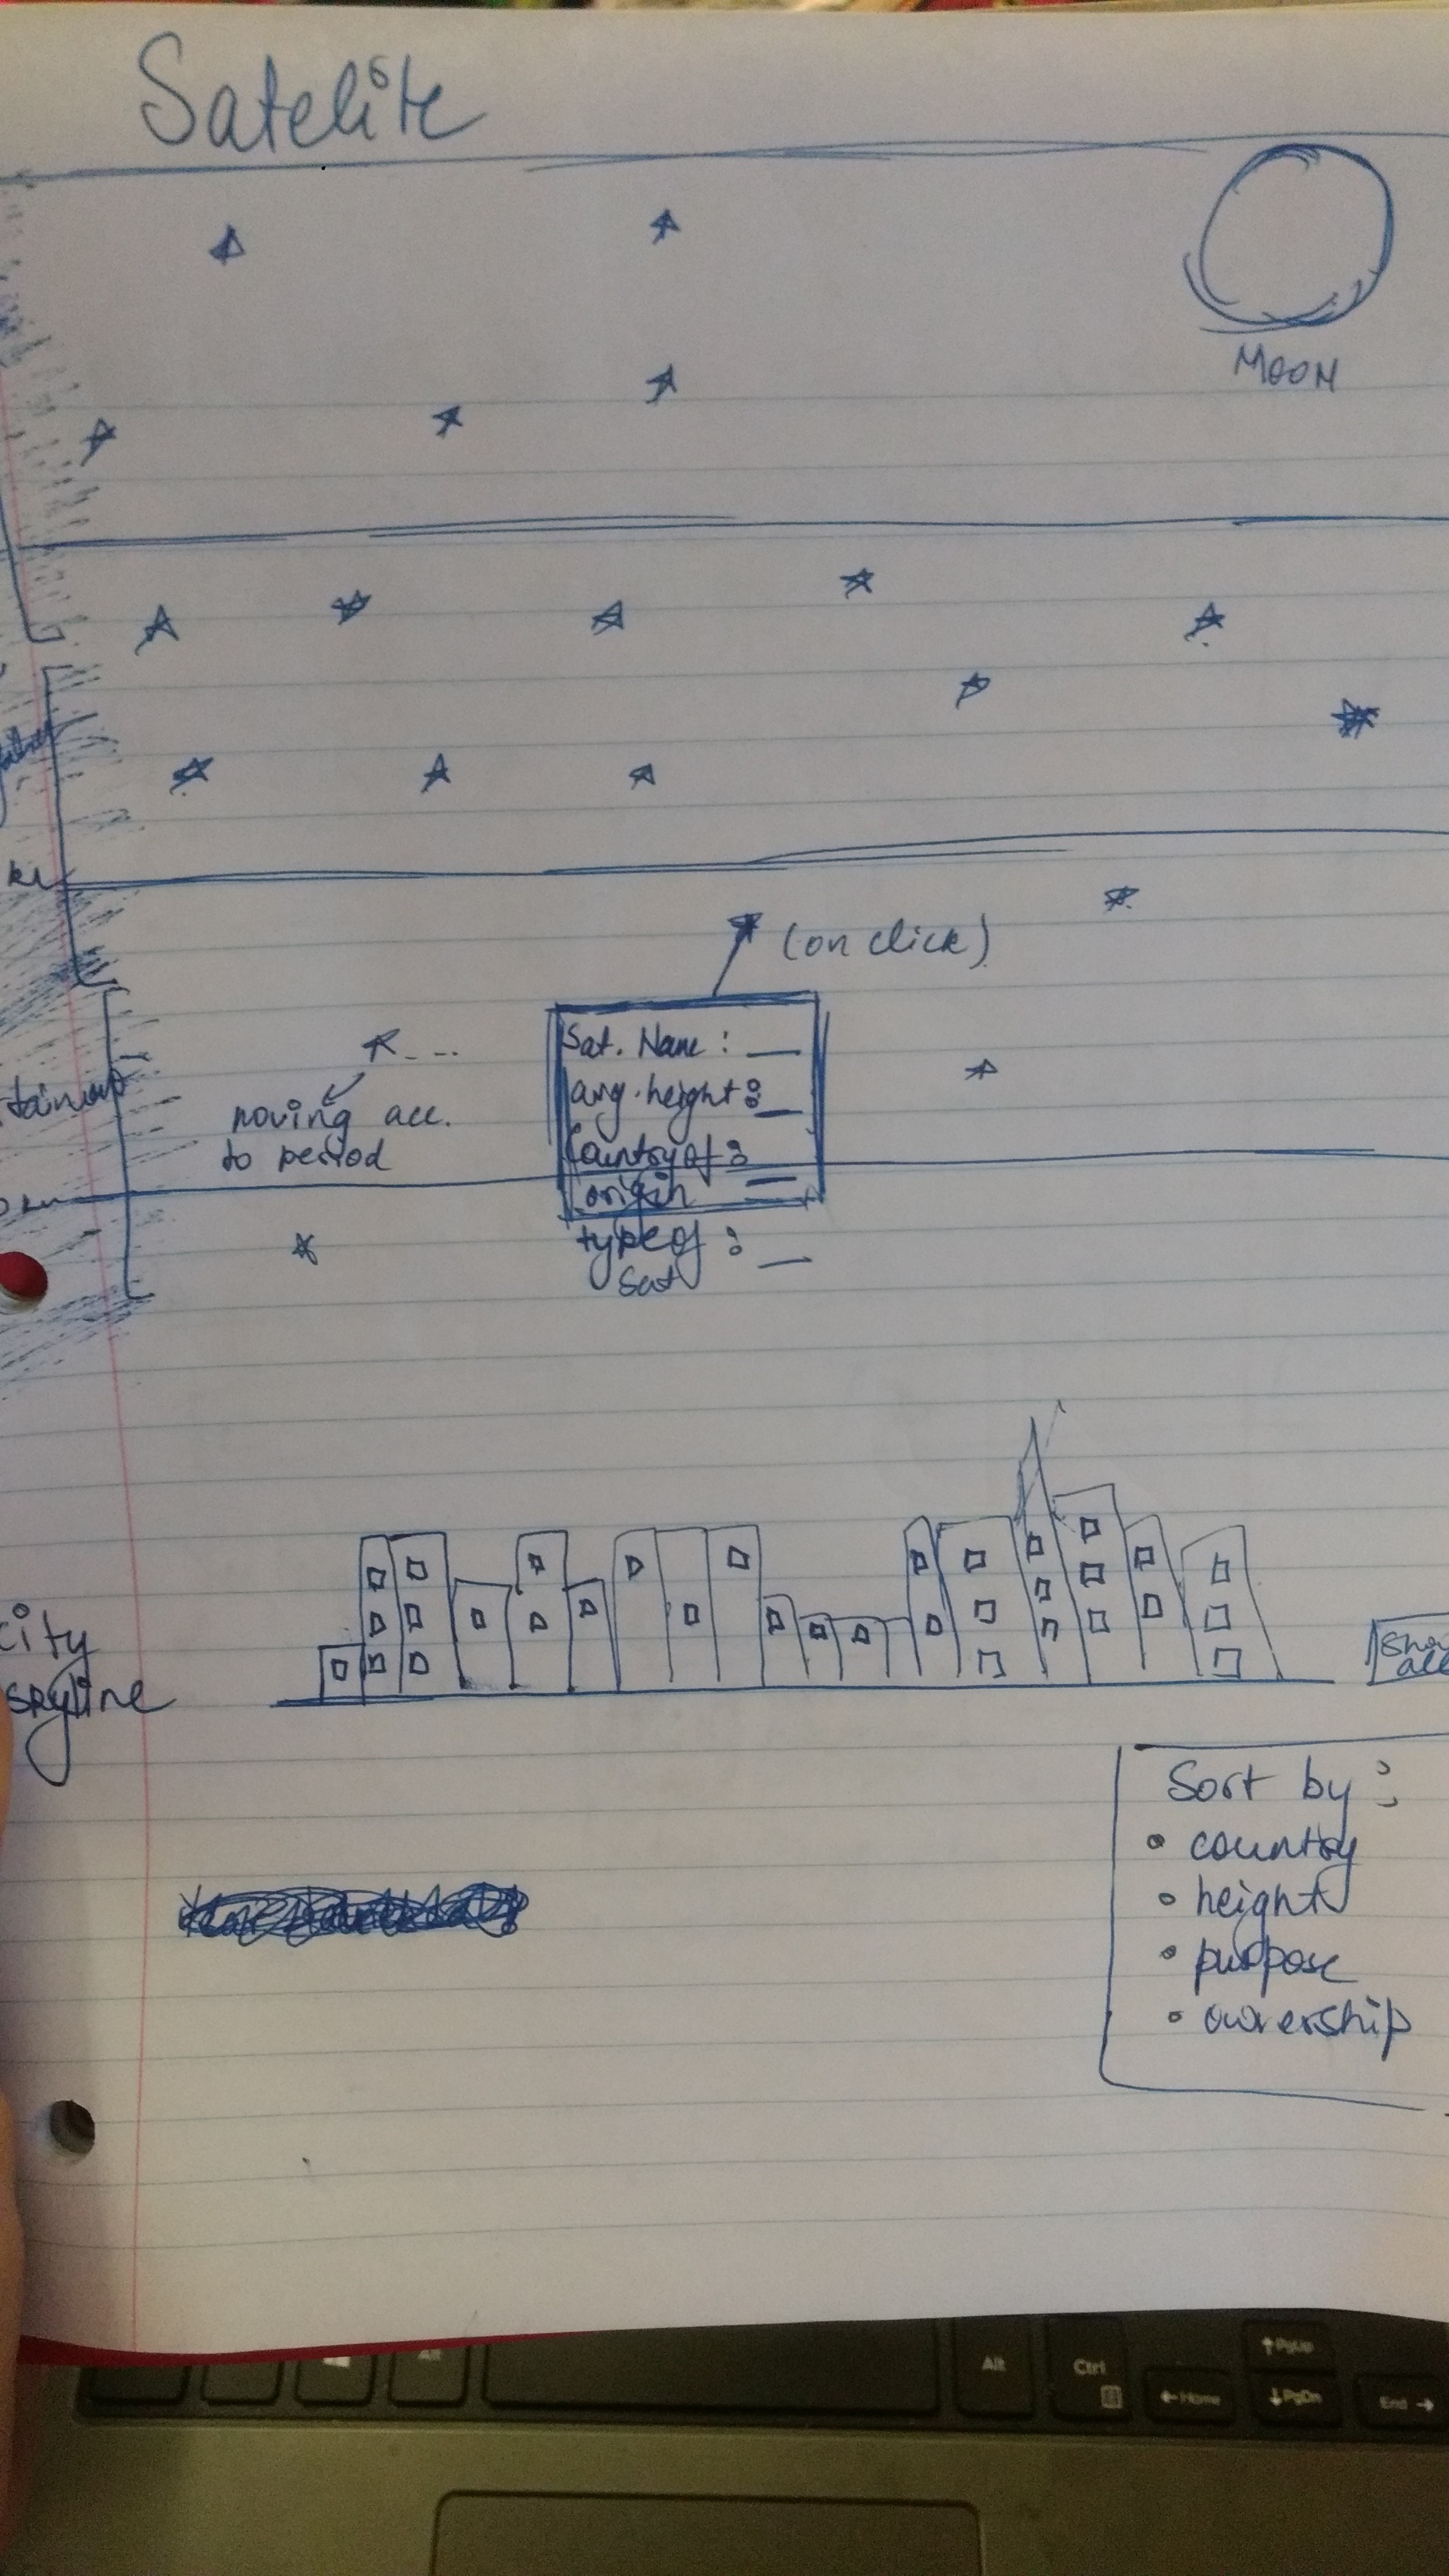 Satelite
MOON
km
(on click)
Sat. Name : __
avg. height : __
Country of :
origin __
type of : __
Sat
moving acc.
to period
city
skyline
Sort by :
• country
• height
• purpose
• ownership
Alt
Alt
Ctrl
↑PgUp
←Home
↓PgDn
End→